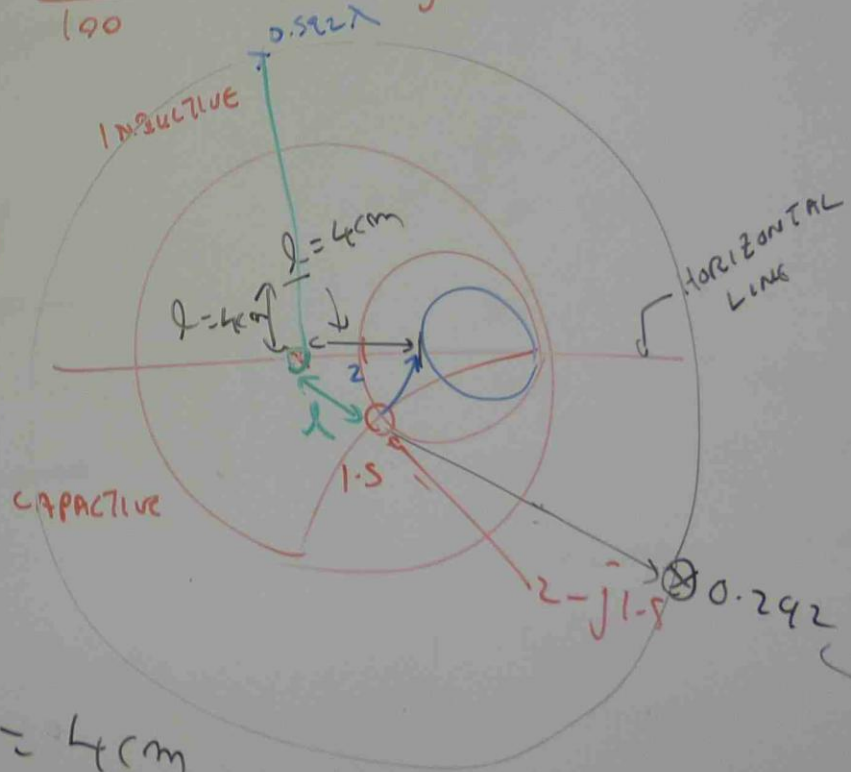 100
0.592λ
INDUCTIVE
l=4cm
l=4cm
HORIZONTAL
LINE
2
l
1.5
CAPACTIVE
2-j1.5
0.292
= 4cm